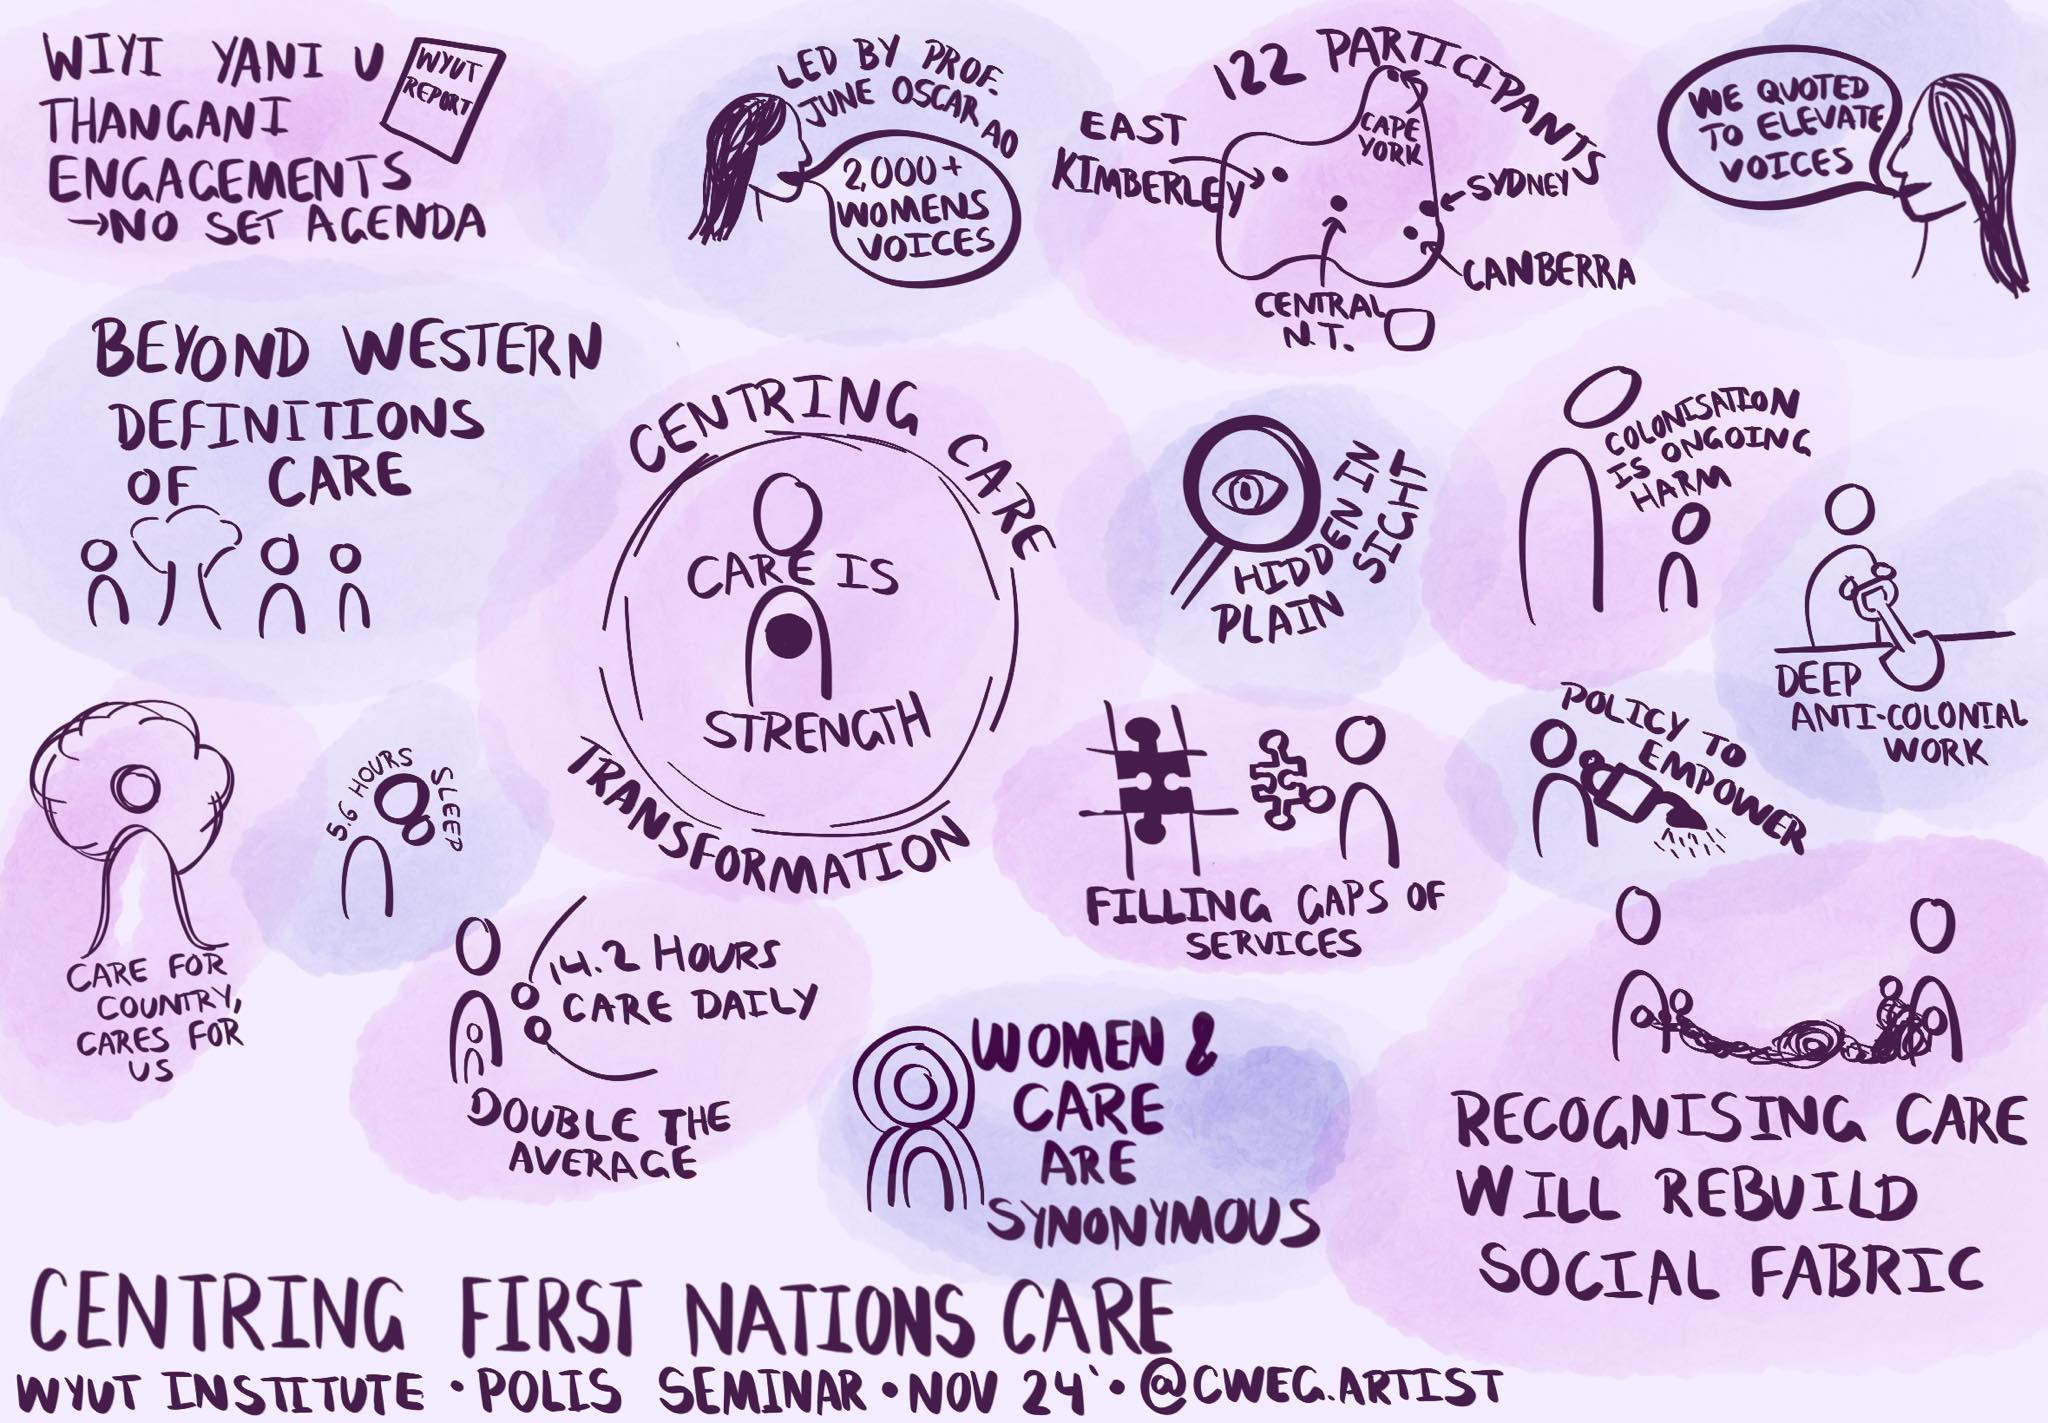 WIYI YANI U
THANGANI
ENGAGEMENTS
→NO SET AGENDA
WYUT
REPORT
LED BY PROF.
JUNE OSCAR AO
2,000+
WOMENS
VOICES
122 PARTICIPANTS
EAST
KIMBERLEY
CAPE
YORK
SYDNEY
CANBERRA
CENTRAL
N.T.
WE QUOTED
TO ELEVATE
VOICES
BEYOND WESTERN
DEFINITIONS
OF CARE
CENTRING CARE
CARE IS
STRENGTH
TRANSFORMATION
HIDDEN IN
PLAIN SIGHT
COLONISATION
IS ONGOING
HARM
DEEP
ANTI-COLONIAL
WORK
CARE FOR
COUNTRY,
CARES FOR
US
5.6 HOURS
SLEEP
14.2 HOURS
CARE DAILY
DOUBLE THE
AVERAGE
FILLING GAPS OF
SERVICES
POLICY TO
EMPOWER
WOMEN &
CARE
ARE
SYNONYMOUS
RECOGNISING CARE
WILL REBUILD
SOCIAL FABRIC
CENTRING FIRST NATIONS CARE
WYUT INSTITUTE • POLIS SEMINAR • NOV 24' • @CWEG.ARTIST